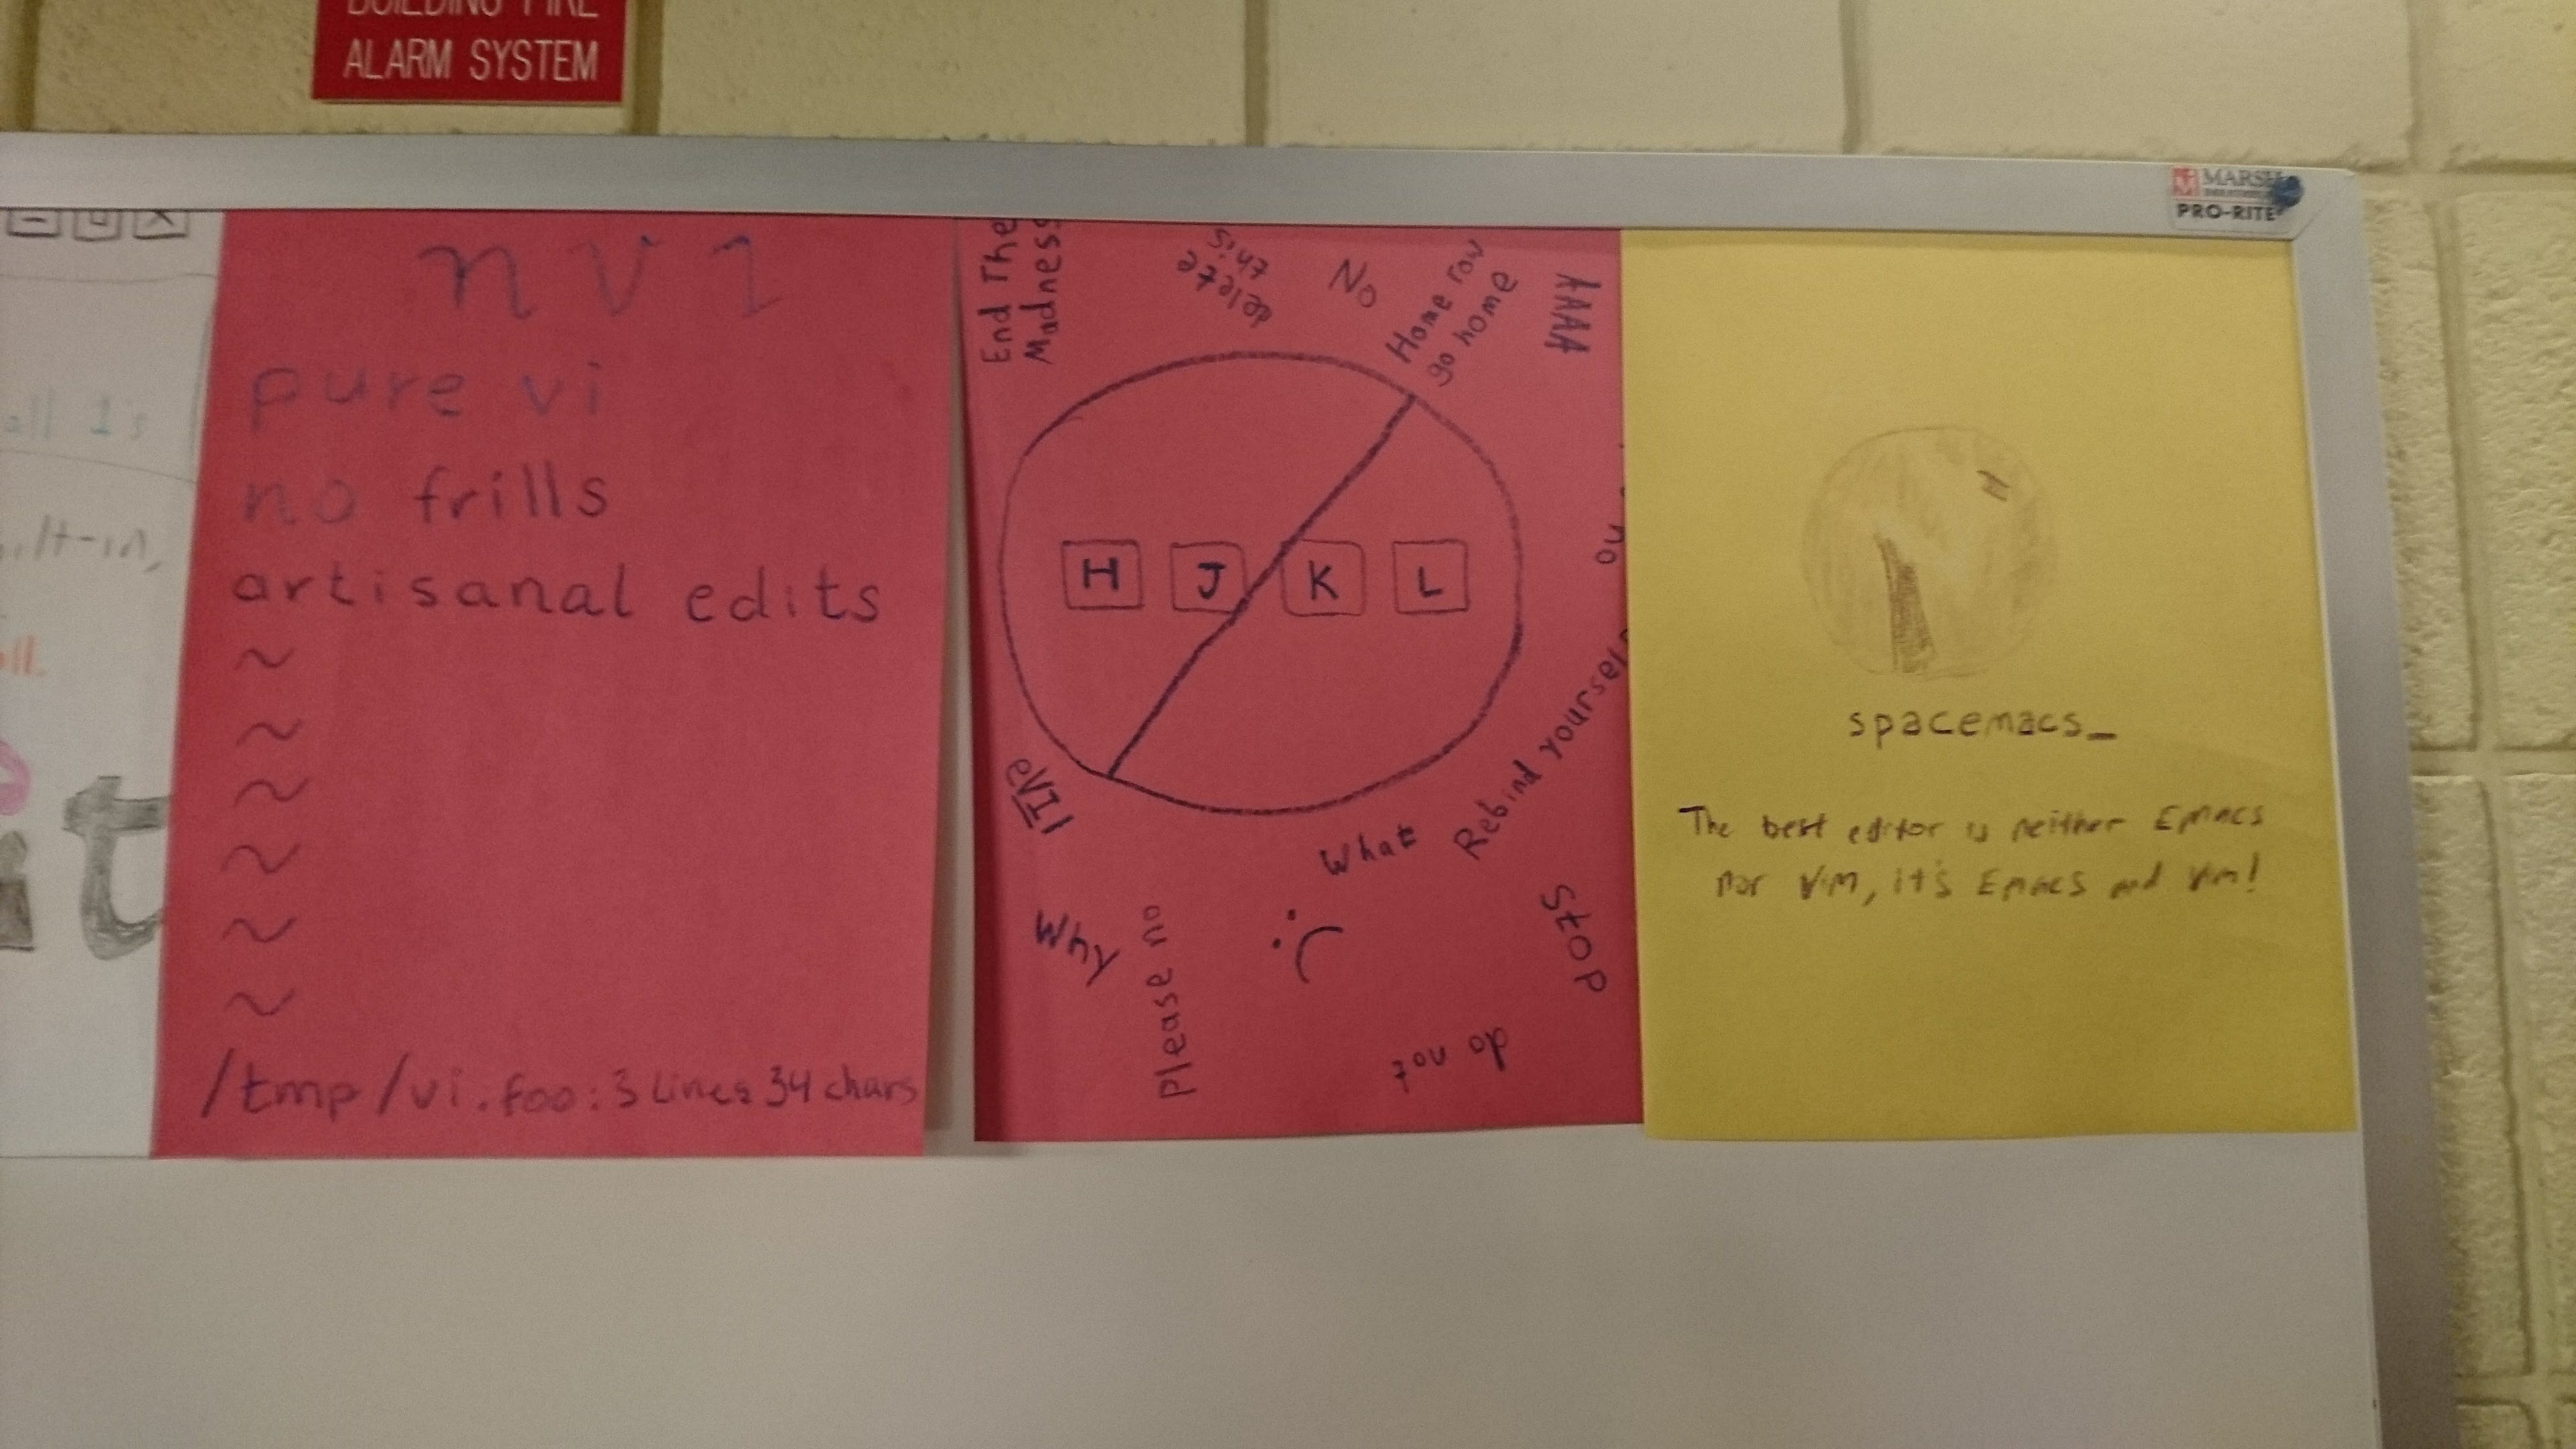 BUILDING FIRE
ALARM SYSTEM
MARSH
PRO-RITE
all 1's
t
nvi
pure vi
no frills
artisanal edits
~
~
~
~
~
~
/tmp/vi.foo: 3 lines 34 chars
End The
Madness
delete
this
No
Home row
go home
AAAA
no
H J K L
Rebind yourself
What
eVIl
Why
please no
:(
STOP
do not
spacemacs_
The best editor is neither Emacs
nor Vim, it's Emacs and Vim!